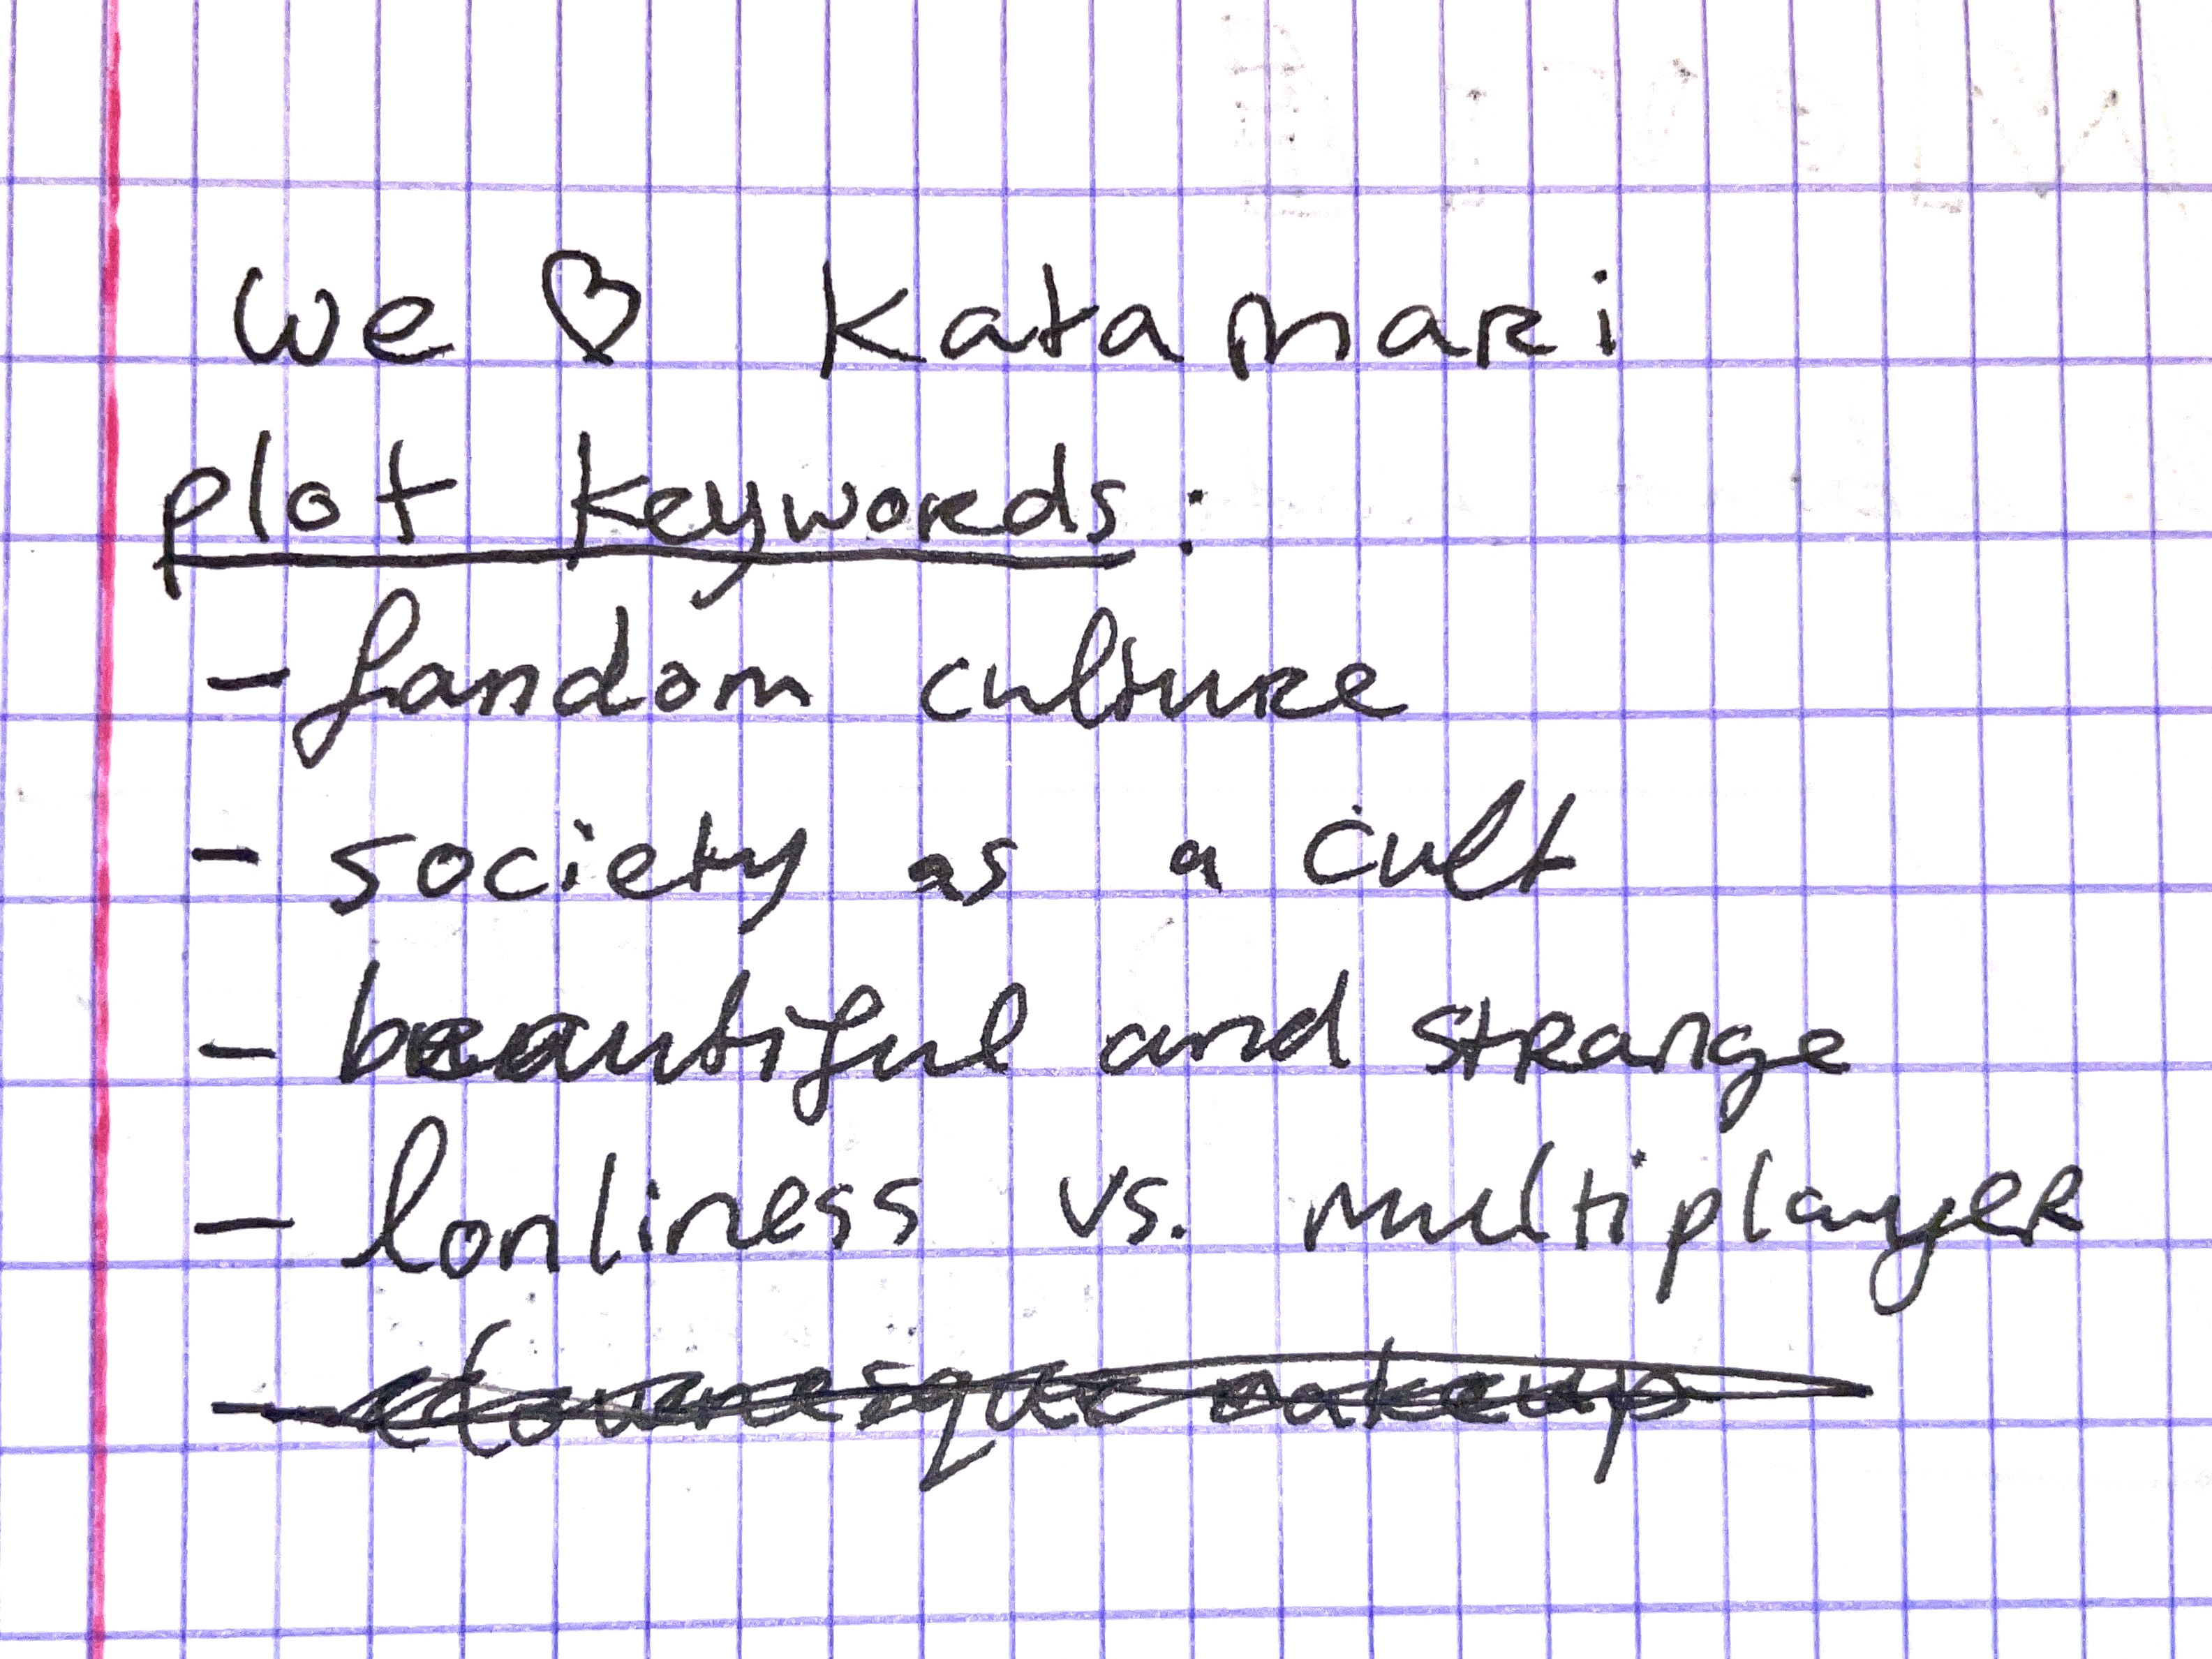 We ♡ Katamari
plot keywords:
- fandom culture
- society as a cult
- beautiful and strange
- lonliness vs. multiplayer
- makeup